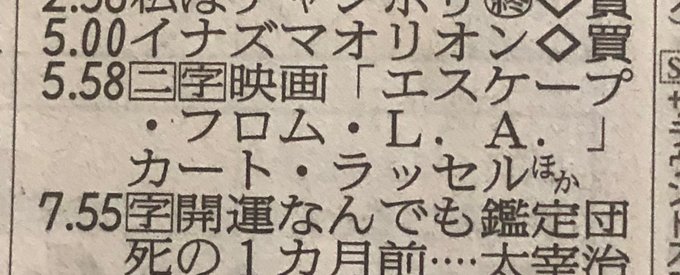 5.00イナズマオリオン◇買
5.58二字映画「エスケープ
・フロム・L．A．」
カート・ラッセルほか
7.55字開運なんでも鑑定団
死の1カ月前‥‥太宰治